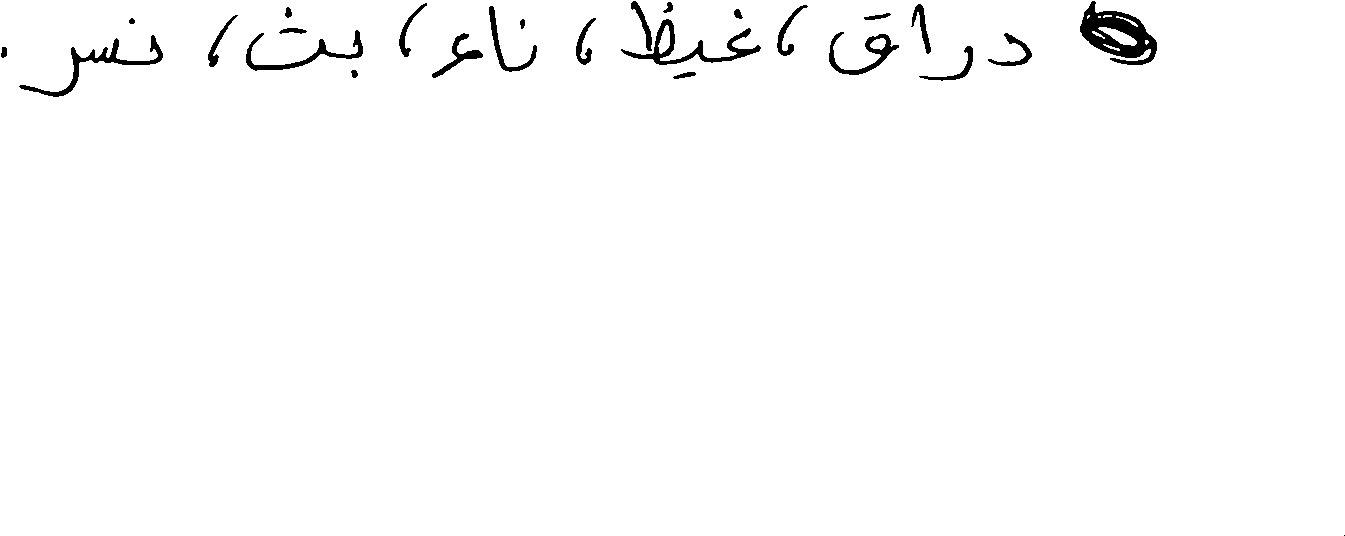 دراق، غيظ، ناء، بث، نسر.